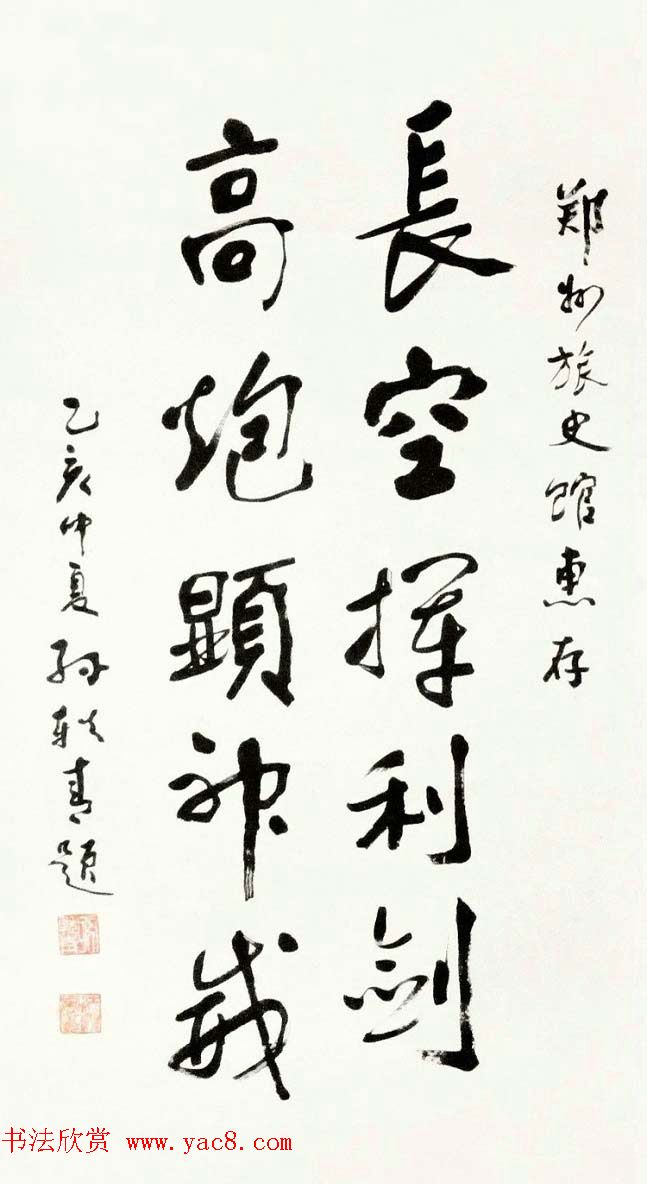 郑州旅史馆惠存
長空揮利剑
高炮顯神威
乙亥仲夏孙轶青题
书法欣赏 www.yac8.com